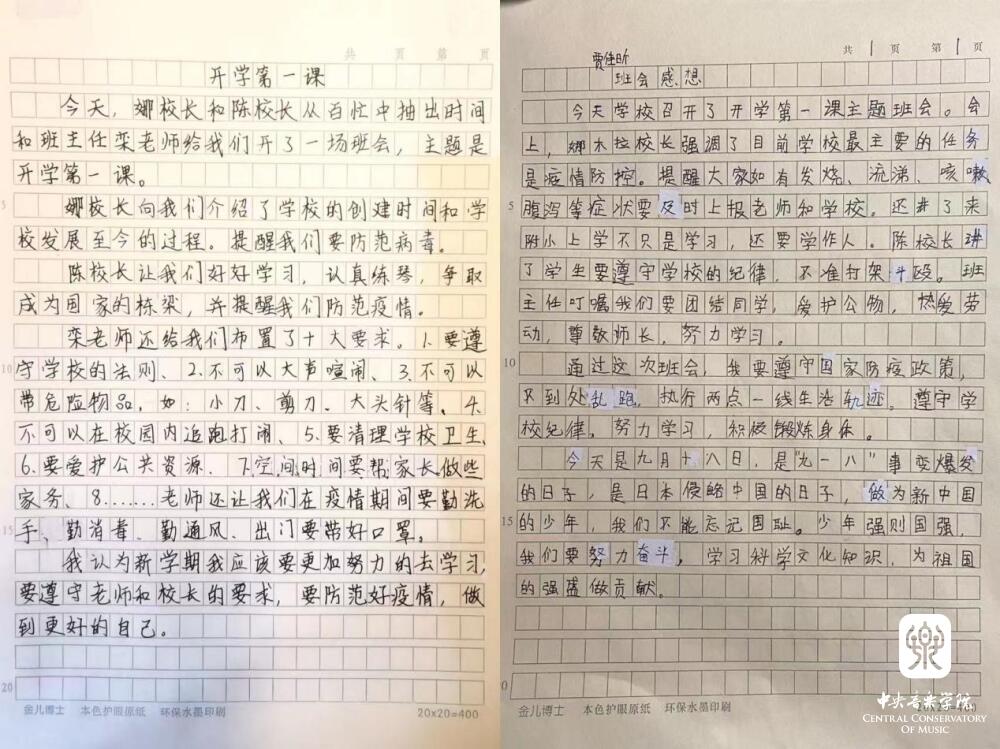 共 页 第 页
开学第一课
今天，娜校长和陈校长从百忙中抽出时间
和班主任栾老师给我们开了一场班会，主题是
开学第一课。
5
娜校长向我们介绍了学校的创建时间和学
校发展至今的过程。提醒我们要防范病毒。
陈校长让我们好好学习，认真练琴，争取
成为国家的栋梁，并提醒我们防范疫情。
栾老师还给我们布置了十大要求。1.要遵
10
守学校的法则、2.不可以大声喧闹、3.不可以
带危险物品，如：小刀、剪刀、大头针等、4.
不可以在校园内追跑打闹、5.要清理学校卫生、
6.要爱护公共资源、7.空闲时间要帮家长做些
家务、8.……老师还让我们在疫情期间要勤洗
15
手、勤消毒、勤通风、出门要带好口罩。
我认为新学期我应该要更加努力的去学习，
要遵守老师和校长的要求，要防范好疫情，做
到更好的自己。
20
金儿博士 本色护眼原纸 环保水墨印刷 20×20=400
共 1 页 第 1 页
贾佳昕
班会感想
今天学校召开了开学第一课主题班会。会
上，娜木拉校长强调了目前学校最主要的任务
是疫情防控。提醒大家如有发烧、流涕、咳嗽
5
腹泻等症状要及时上报老师和学校。还讲了来
附小上学不只是学习，还要学作人。陈校长讲
了学生要遵守学校的纪律，不准打架斗殴。班
主任叮嘱我们要团结同学，爱护公物，热爱劳
动，尊敬师长，努力学习。
10
通过这次班会，我要遵守国家防疫政策，
不到处乱跑，执行两点一线生活轨迹。遵守学
校纪律，努力学习，积极锻炼身体。
今天是九月十八日，是“九一八”事变爆发
的日子，是日本侵略中国的日子，做为新中国
15
的少年，我们不能忘记国耻。少年强则国强，
我们要努力奋斗，学习科学文化知识，为祖国
的强盛做贡献。
金儿博士 本色护眼原纸 环保水墨印刷 20×20=400
中央音乐学院
CENTRAL CONSERVATORY
OF MUSIC